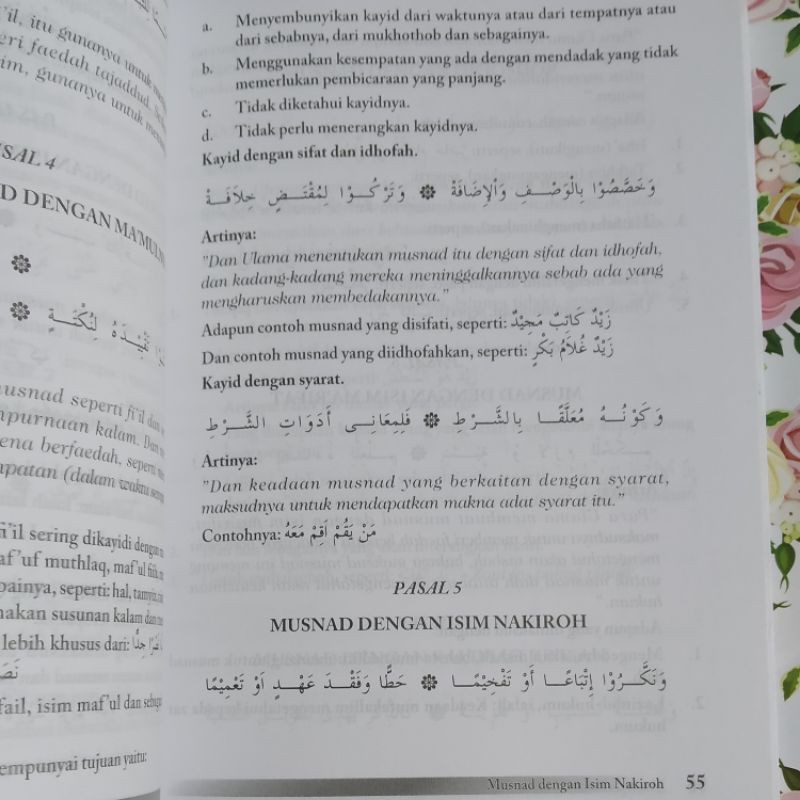 'il, itu gunanya untuk
eri faedah tajaddud.
im, gunanya untuk
SAL 4
D DENGAN MA'MUL
تَقْيِيْدَهُ لِنُكْتَةٍ
musnad seperti fi'il dan
mpurnaan kalam. Dan
ena berfaedah, seperti
mpatan (dalam waktu
fi'il sering dikayidi dengan
af'uf muthlaq, maf'ul fiih,
painya, seperti: hal, tamyiz,
nakan susunan kalam dan
lebih khusus dari:
fail, isim maf'ul dan sebagi
empunyai tujuan yaitu:
a. Menyembunyikan kayid dari waktunya atau dari tempatnya atau
dari sebabnya, dari mukhothob dan sebagainya.
b. Menggunakan kesempatan yang ada dengan mendadak yang tidak
memerlukan pembicaraan yang panjang.
c. Tidak diketahui kayidnya.
d. Tidak perlu menerangkan kayidnya.
Kayid dengan sifat dan idhofah.
وَخَصَّصُوْا بِالْوَصْفِ وَاْلاِضَافَةْ ۞ وَتَرَكُوْا لِمُقْتَضٍ خِلَافَهْ
Artinya:
"Dan Ulama menentukan musnad itu dengan sifat dan idhofah,
dan kadang-kadang mereka meninggalkannya sebab ada yang
mengharuskan membedakannya."
Adapun contoh musnad yang disifati, seperti: زَيْدٌ كَاتِبٌ مَجِيْدٌ
Dan contoh musnad yang diidhofahkan, seperti: زَيْدٌ غُلَامُ بَكْرٍ
Kayid dengan syarat.
وَكَوْنُهُ مُعَلَّقًا بِالشَّرْطِ ۞ فَلِمَعَانِى أَدَوَاتِ الشَّرْطِ
Artinya:
"Dan keadaan musnad yang berkaitan dengan syarat,
maksudnya untuk mendapatkan makna adat syarat itu."
Contohnya: مَنْ يَقُمْ اَقِمْ مَعَهُ
PASAL 5
MUSNAD DENGAN ISIM NAKIROH
وَنَكَّرُوْا اِتْبَاعًا أَوْ تَفْخِيْمًا ۞ حَطًّا وَفَقْدَ عَهْدٍ اَوْ تَعْمِيْمًا
Musnad dengan Isim Nakiroh 55